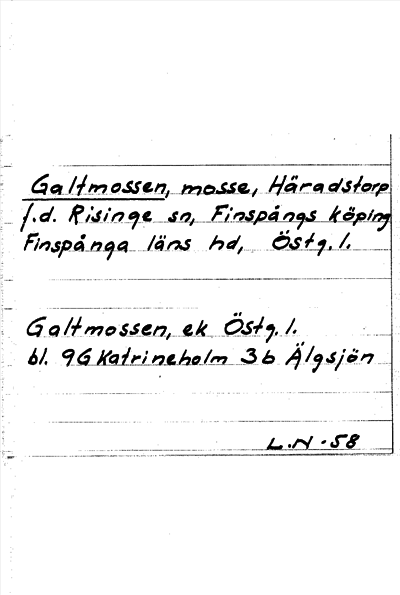 Galtmossen, mosse, Häradstorp
f.d. Risinge sn, Finspångs köping
Finspånga läns hd, Östg. l.
Galtmossen, ek Östg. l.
bl. 9G Katrineholm 3b Älgsjön
L.N -58